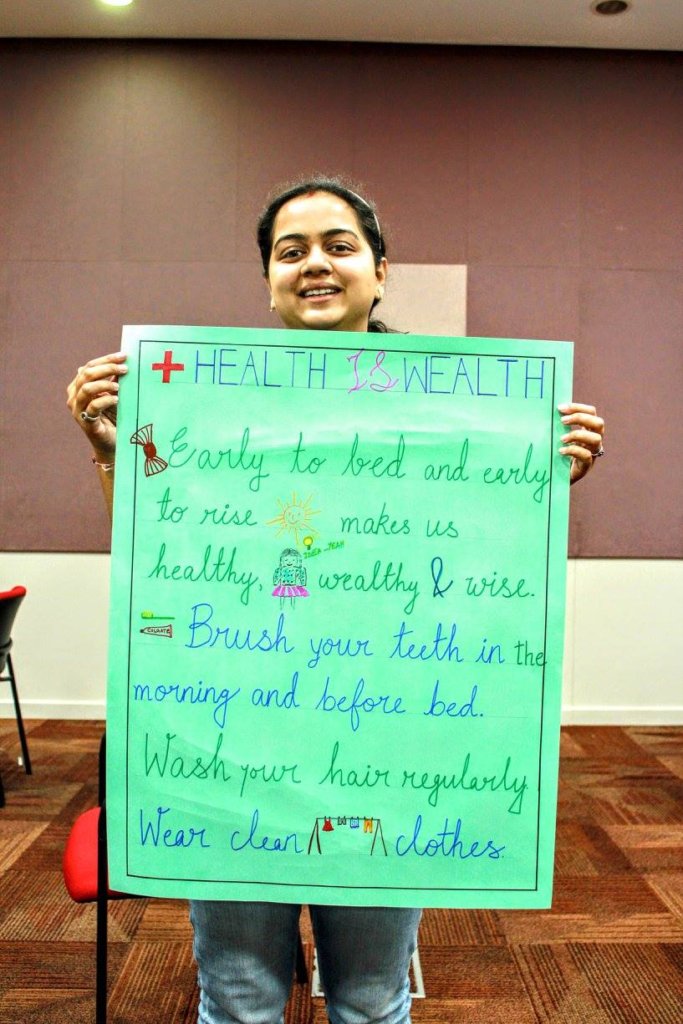 HEALTH IS WEALTH
Early to bed and early
to rise makes us
IDEA-YEAH
healthy, wealthy & wise.
COLGATE
Brush your teeth in the
morning and before bed.
Wash your hair regularly.
Wear clean clothes.